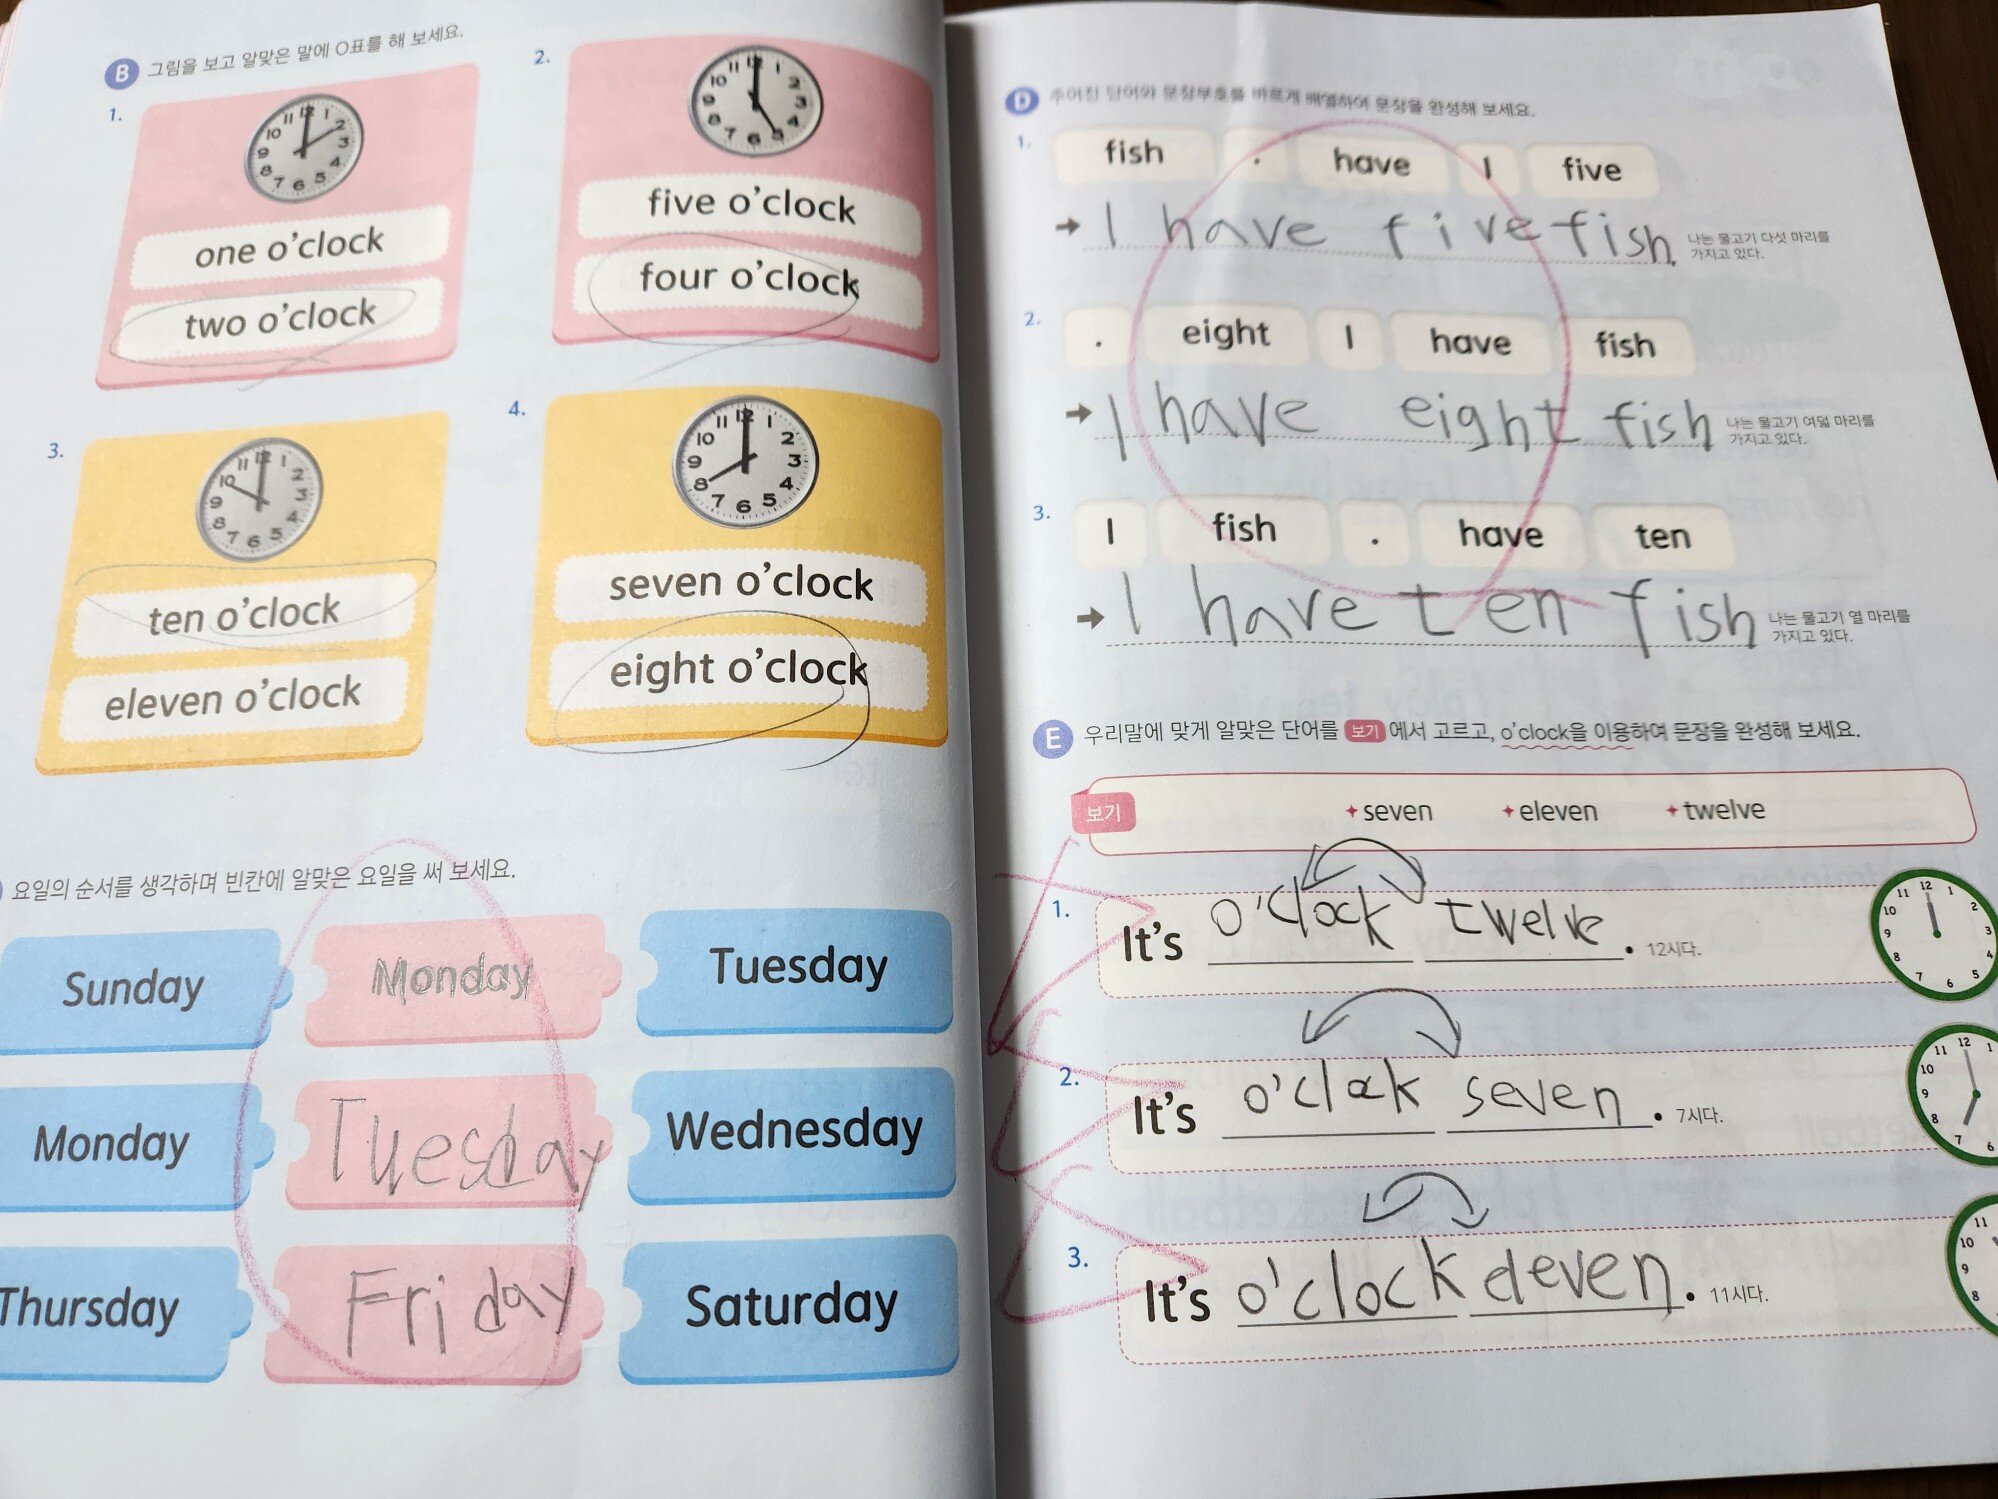 B 그림을 보고 알맞은 말에 O표를 해 보세요.
1.
12 1 2 3 4 5 6 7 8 9 10 11
one o'clock
two o'clock
2.
12 1 2 3 4 5 6 7 8 9 10 11
five o'clock
four o'clock
3.
12 1 2 3 4 5 6 7 8 9 10 11
ten o'clock
eleven o'clock
4.
12 1 2 3 4 5 6 7 8 9 10 11
seven o'clock
eight o'clock
요일의 순서를 생각하며 빈칸에 알맞은 요일을 써 보세요.
Sunday Monday Tuesday
Monday Tuesday Wednesday
Thursday Friday Saturday
D 주어진 단어와 문장부호를 바르게 배열하여 문장을 완성해 보세요.
1. fish . have I five
→ I have five fish. 나는 물고기 다섯 마리를
가지고 있다.
2. . eight I have fish
→ I have eight fish 나는 물고기 여덟 마리를
가지고 있다.
3. I fish . have ten
→ I have ten fish 나는 물고기 열 마리를
가지고 있다.
E 우리말에 맞게 알맞은 단어를 보기 에서 고르고, o'clock을 이용하여 문장을 완성해 보세요.
보기 seven eleven twelve
1. It's o'clock twelve . 12시다.
2. It's o'clok seven . 7시다.
3. It's o'clock eleven . 11시다.